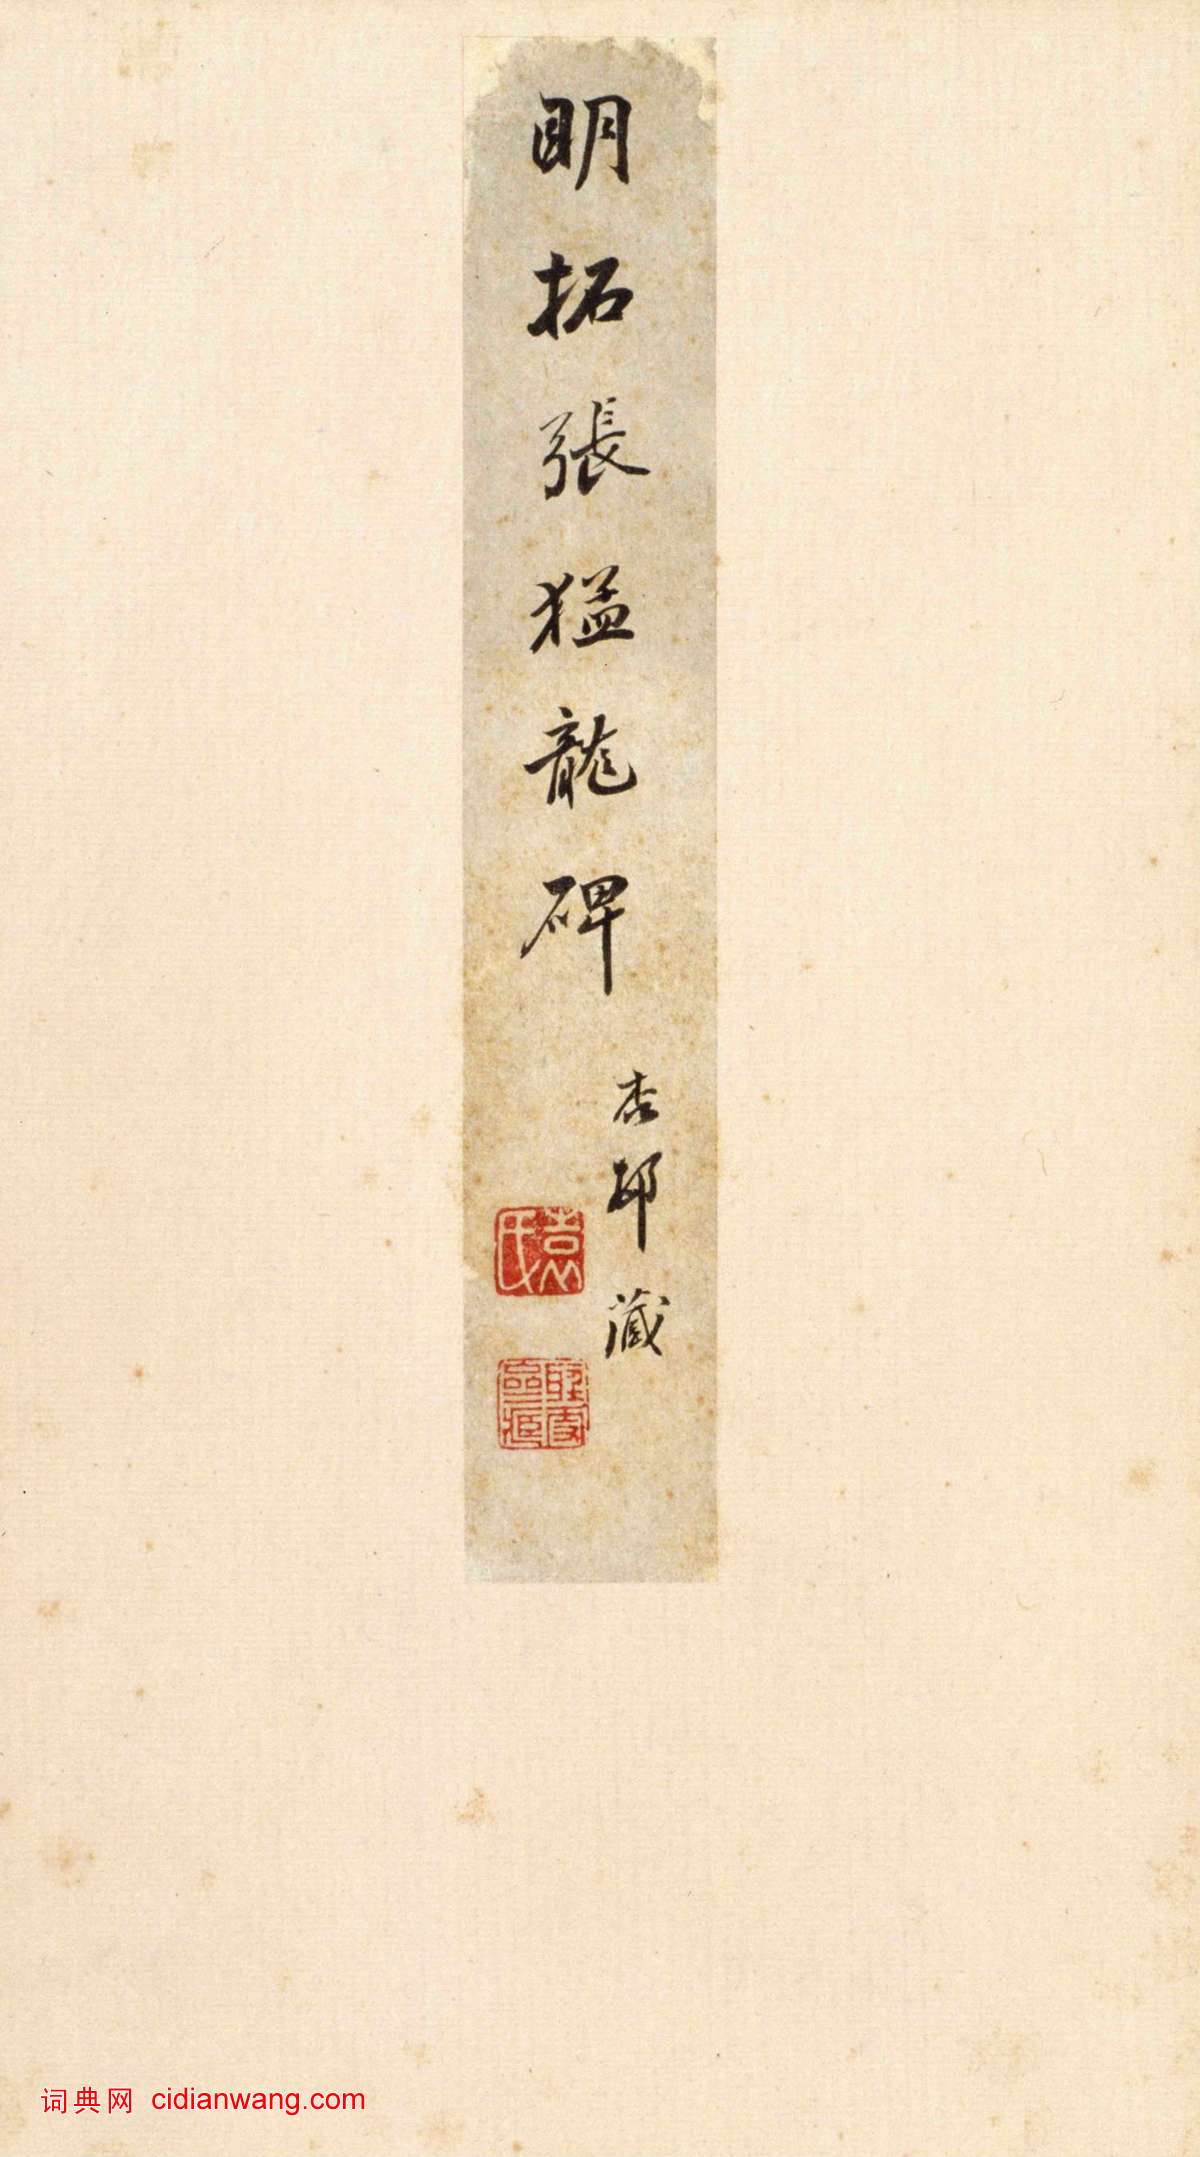 明拓張猛龍碑
杏邨藏
袁氏
词典网 cidianwang.com